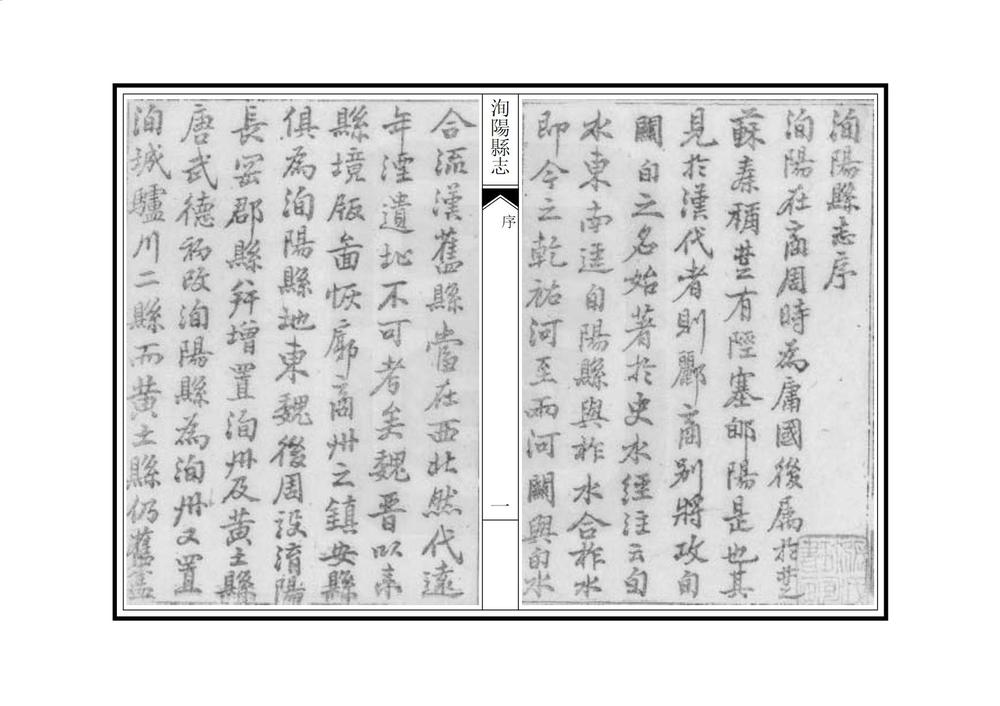 洵陽縣志序
洵陽在商周時為庸國後属於楚
蘇秦稱楚有陘塞郇陽是也其
見於漢代者則酈商別將攻旬
關旬之名始著於史水經注云旬
水東南逕旬陽縣與柞水合柞水
即今之乾祐河至兩河關與旬水
洵陽縣志
序
一
合流漢舊縣當在西北然代遠
年湮遺址不可考矣魏晋以来
縣境版啚恢廓商州之鎮安縣
俱為洵陽縣地東魏後周設淯陽
長罡郡縣八并增置洵州及黄土縣
唐武德初改洵陽縣為洵州又置
洵城驢川二縣而黄土縣仍舊盖